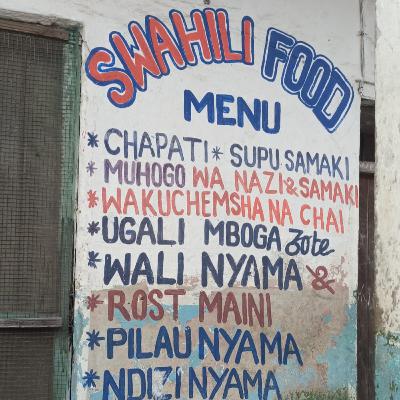 SWAHILI FOOD
MENU
* CHAPATI * SUPU SAMAKI
* MUHOGO WA NAZI & SAMAKI
* WAKUCHEMSHA NA CHAI
* UGALI MBOGA Zote
* WALI NYAMA &
* ROST MAINI
* PILAU NYAMA
* NDIZI NYAMA